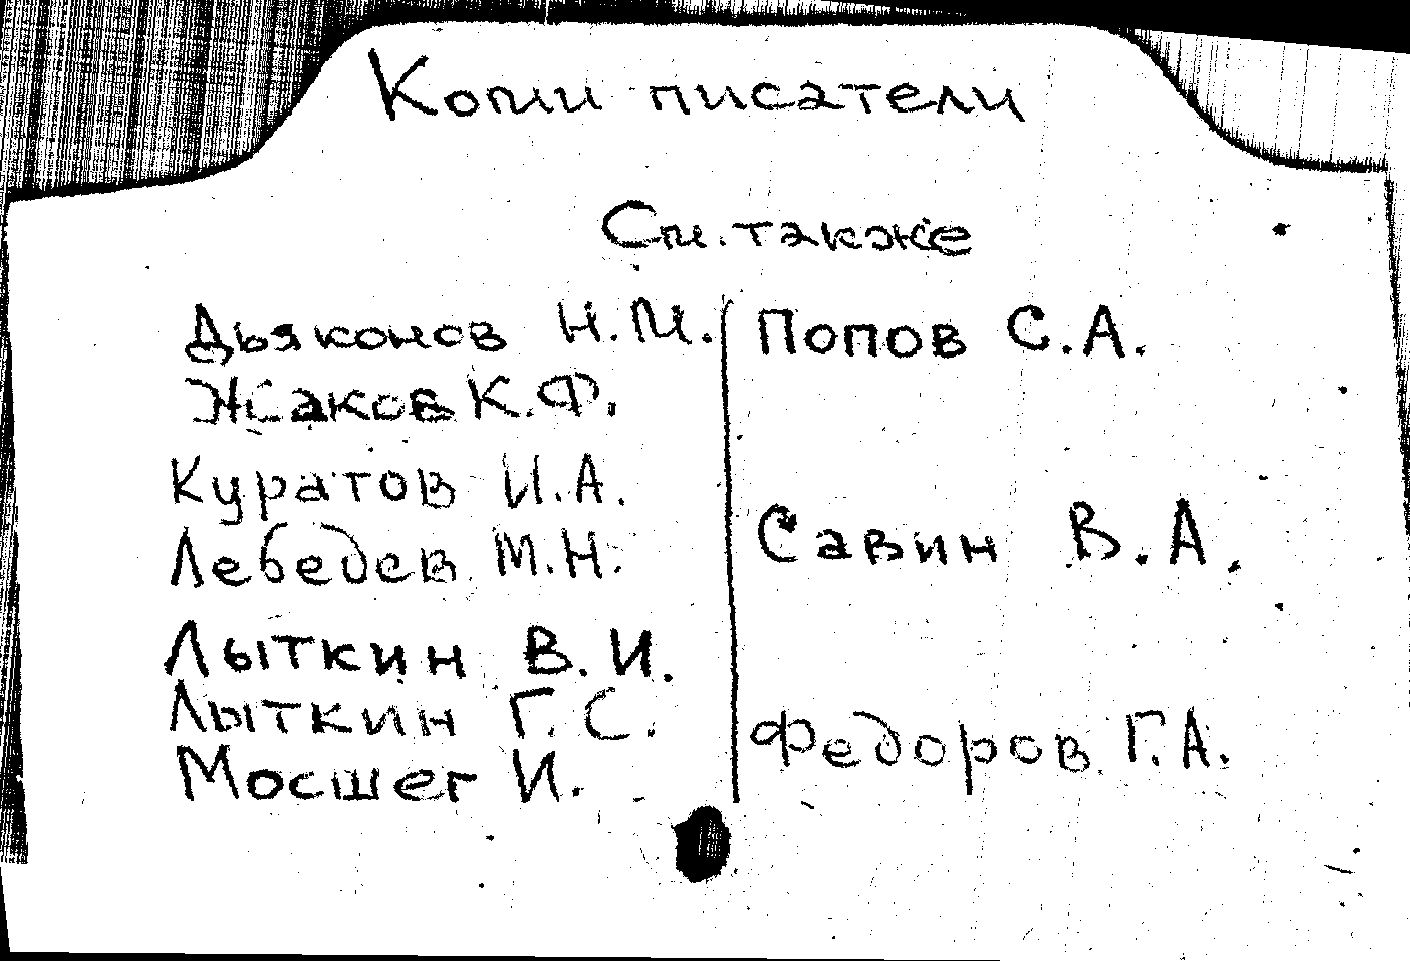 Коми писатели
См. также
Дьяконов Н.М.
Жаков К.Ф.
Куратов И.А.
Лебедев М.Н.
Лыткин В.И.
Лыткин Г.С.
Мосшег И.
Попов С.А.
Савин В.А.
Федоров Г.А.